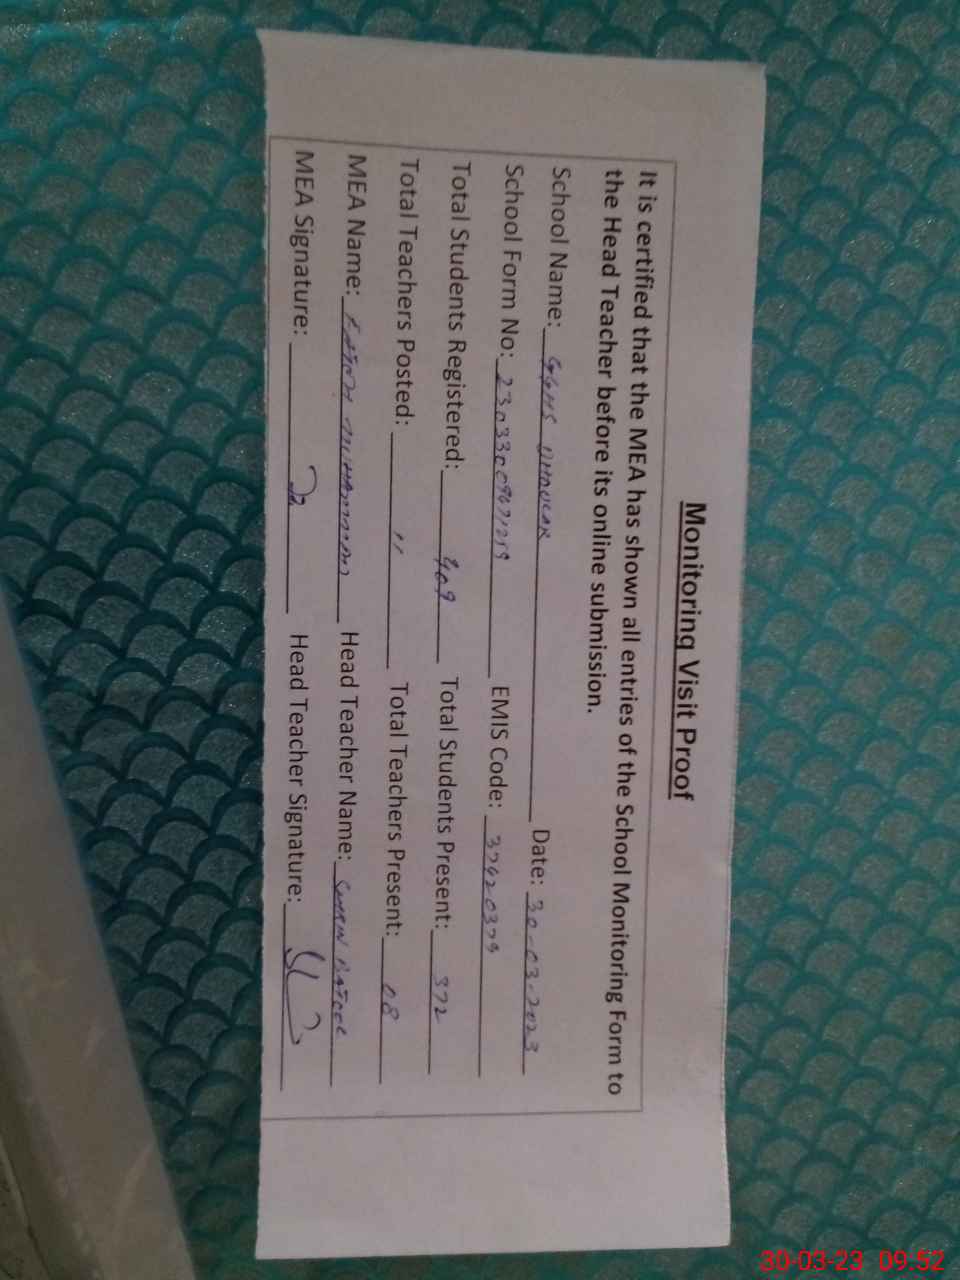 Monitoring Visit Proof
It is certified that the MEA has shown all entries of the School Monitoring Form to
the Head Teacher before its online submission.
School Name: GGHS Date: 30-03-2023
School Form No: EMIS Code: 37420379
Total Students Registered: 409 Total Students Present: 372
Total Teachers Posted: 11 Total Teachers Present: 08
MEA Name: MUHAMMAD Head Teacher Name: BATOOL
MEA Signature: Head Teacher Signature:
30-03-23 09:52